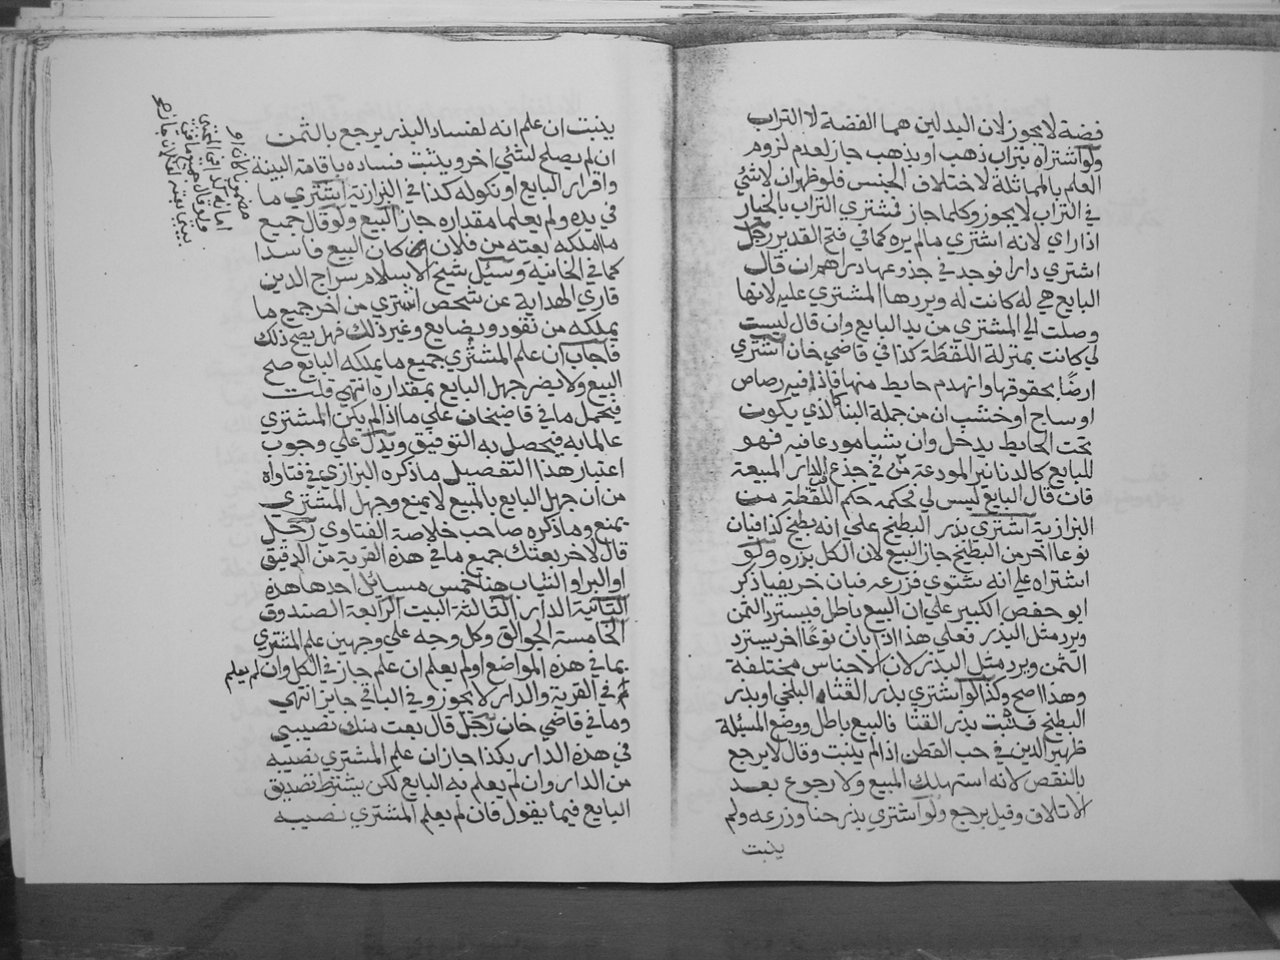 فضة لا يجوز لان البدلين هما الفضة لا التراب
ولو اشتراه بتراب ذهب او بذهب جاز لعدم لزوم
العلم بالمماثلة لاختلاف الجنس فلو ظهر ان لا شئ
في التراب لا يجوز وكلما جاز فمشتري التراب بالخيار
اذا راي لانه اشتري ما لم يره كما في فتح القدير رجل
اشتري دارا فوجد في جذوعها دراهم ان قال
البايع هي له كانت له ويردها المشتري عليه لانها
وصلت الي المشتري من يد البايع وان قال ليست
لي كانت بمنزلة اللقطة كذا في قاضي خان اشتري
ارضا بحقوقها وانهدم حايط منها فاذا فيه رصاص
او ساج او خشب ان من جملة البنا كالذي يكون
تحت الحايط يدخل وان شيا مودعا فيه فهو
للبايع كالدنانير المودعة من في جذع الدار المبيعة
فان قال البايع ليس لي فحكمه حكم اللقطة من
البزازية اشتري بذر البطيخ علي انه بطيخ كذا فبان
نوعا اخر من البطيخ جاز البيع لان الكل بزره ولو
اشتراه علي انه شتوي فزرعه فبان خريفيا ذكر
ابو حفص الكبير علي ان البيع باطل فيسترد الثمن
ويرد مثل البذر فعلي هذا اذا بان نوعا اخر يسترد
الثمن ويرد مثل البذر لان الاجناس مختلفة
وهذا اصح وكذا لو اشتري بذر القثاء البلخي او بذر
البطيخ فنبت بذر القثا فالبيع باطل ووضع المسئلة
ظهير الدين في حب القطن اذا لم ينبت وقال لا يرجع
بالنقص لانه استهلك المبيع ولا رجوع بعد
الاتلاف وقيل يرجع ولو اشتري بذر حنا وزرعه ولم
ينبت
ينبت ان علم انه لفساد البذر يرجع بالثمن
ان لم يصلح لشئي اخر ويثبت فساده باقامة البينة
واقرار البايع او نكوله كذا في البزازية اشتري ما
في يده ولم يعلما مقداره جاز البيع ولو قال جميع
ما املكه بعته من فلان كان البيع فاسدا
كما في الخانية وسئيل شيخ الاسلام سراج الدين
قاري الهداية عن شخص اشتري من اخر جميع ما
يملكه من نقود وبضايع وغير ذلك فهل يصح ذلك
فاجاب ان علم المشتري جميع ما يملكه البايع صح
البيع ولا يضر جهل البايع بمقداره انتهي قلت
فيحمل ما في قاضيخان علي ما اذا لم يكن المشتري
عالما به فيحصل به التوفيق ويدل علي وجوب
اعتبار هذا التفصيل ما ذكره البزازي في فتاواه
من ان جهل البايع بالمبيع لا يمنع وجهل المشتري
يمنع وما ذكره صاحب خلاصة الفتاوي رجل
قال لاخر بعتك جميع ما في هذه القرية من الدقيق
او البر او الثياب هنا خمس مسايل احدها هذه
الثانية الدار الثالثة البيت الرابعة الصندوق
الخامسة الجوالق وكل وجه علي وجهين علم المشتري
بما في هذه المواضع او لم يعلم ان علم جاز في الكل وان لم يعلم
في القرية والدار لا يجوز وفي الباقي جايز انتهي
وما في قاضي خان رجل قال بعت منك نصيبي
في هذه الدار بكذا جاز ان علم المشتري نصيبه
من الدار وان لم يعلم به البايع لكن يشترط تصديق
البايع فيما يقول فان لم يعلم المشتري نصيبه